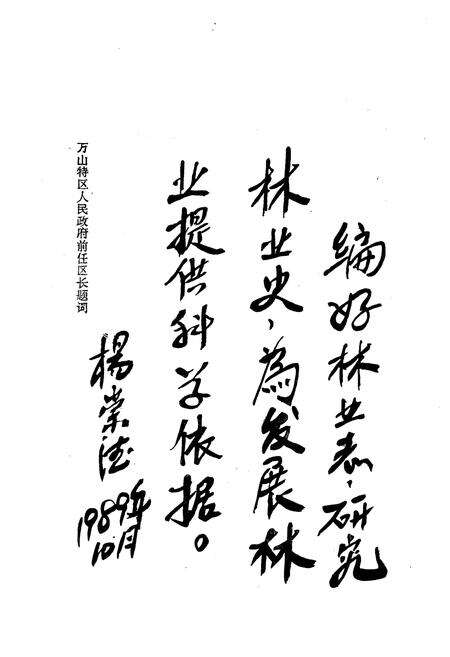 编好林业志，研究
林业史，為发展林
业提供科学依据。
杨崇德
1989年
10月
万山特区人民政府前任区长题词